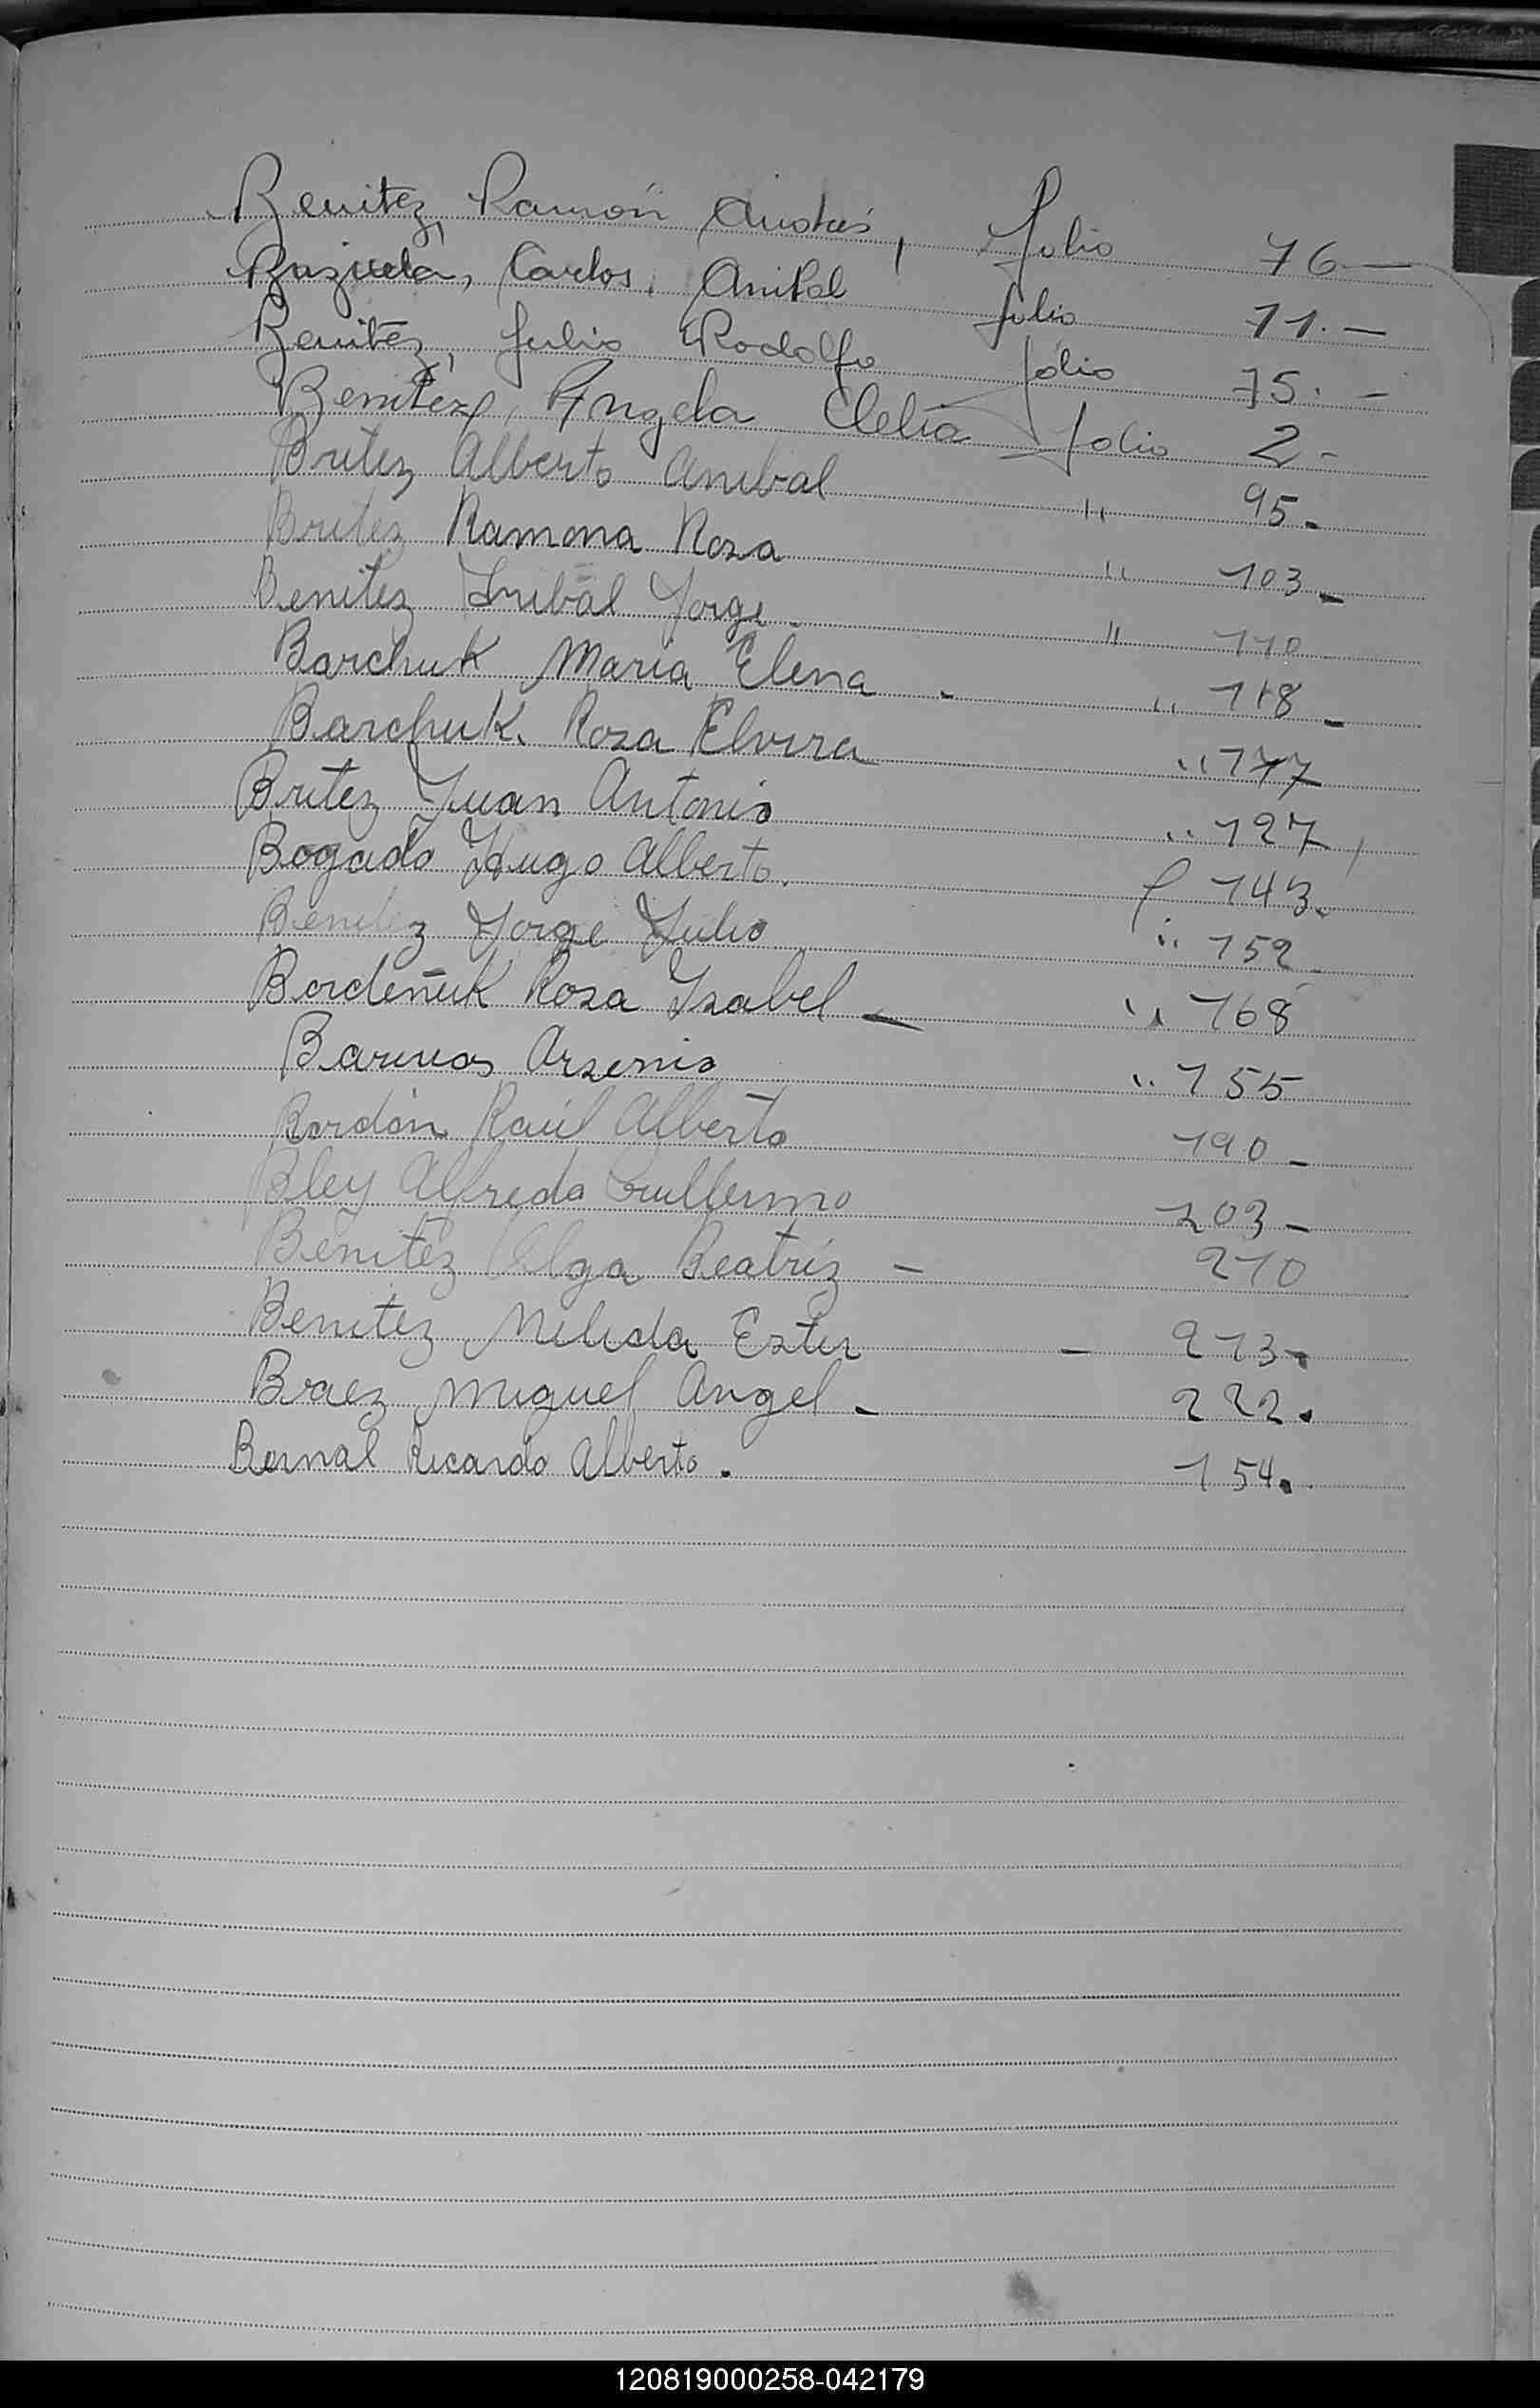 Benitez, Ramón Andrés, folio 76.—
Carlos, Anibal folio 11.—
Benitez, Julio Rodolfo folio 75.—
Benitez, Angela Clelia folio 2-
Britez Alberto Anibal " 95-
Britez Ramona Rosa " 103-
Benitez Anibal Jorge. " 110
Barchuk Maria Elena - " 118-
Barchuk Rosa Elvira " 177
Britez Juan Antonio " 127
Bogado Hugo Alberto. f. 143.
Benitez Jorge Julio " 152
Bordeñuk Rosa Isabel - " 168
Arsenio " 155
Bordón Raúl Alberto 190-
Bley Alfredo Guillermo 203-
Benitez Olga Beatriz - 210
Benitez Nelida Ester - 213-
Baez Miguel Angel - 222.
Bernal Ricardo Alberto. 154.
120819000258-042179